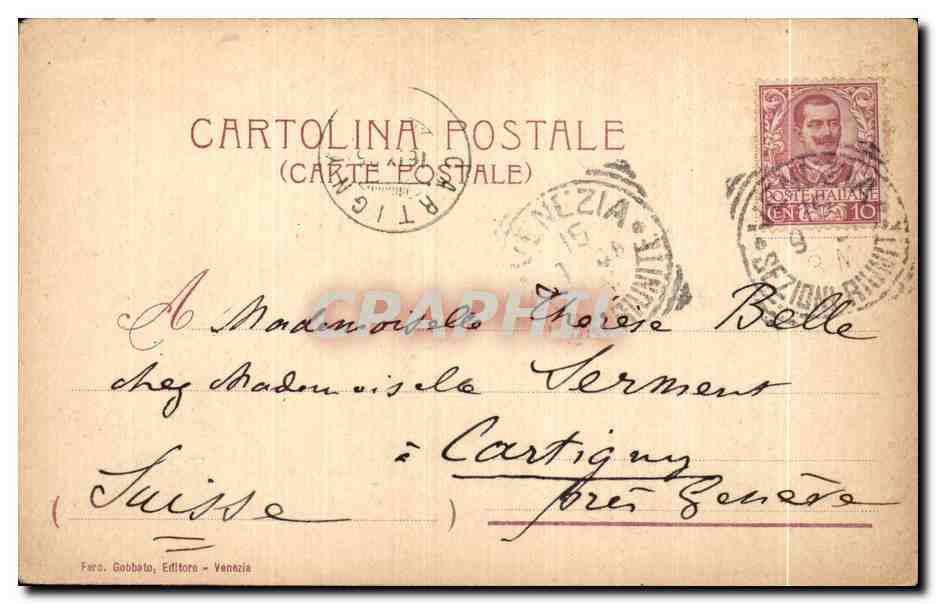 CARTOLINA POSTALE
(CARTE POSTALE)
CARTIGNY
VENEZIA
15
RIUNITE
POSTE ITALIANE
CEN 10
SEZIONI RIUNITE
CPARAMA
A Mademoiselle Therese Belle
chez Mademoiselle Serment
à Cartigny
(Suisse)
près Genève
Ferd. Gobbato, Editore - Venezia